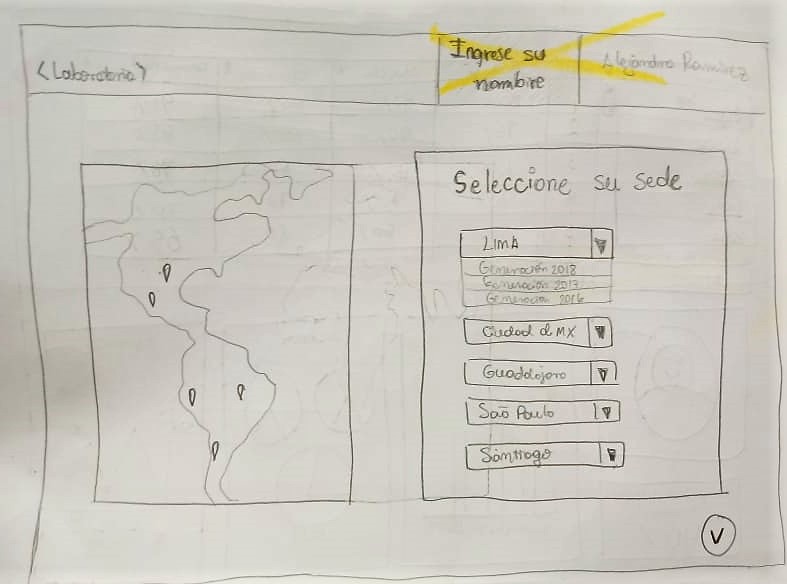 <Laboratoria>
Ingrese su
nombre
Alejandra Ramirez
Seleccione su sede
LIMA
Generación 2018
Generación 2017
Generación 2016
Ciudad d MX
Guadalajara
Saõ Paulo
Santiago
V